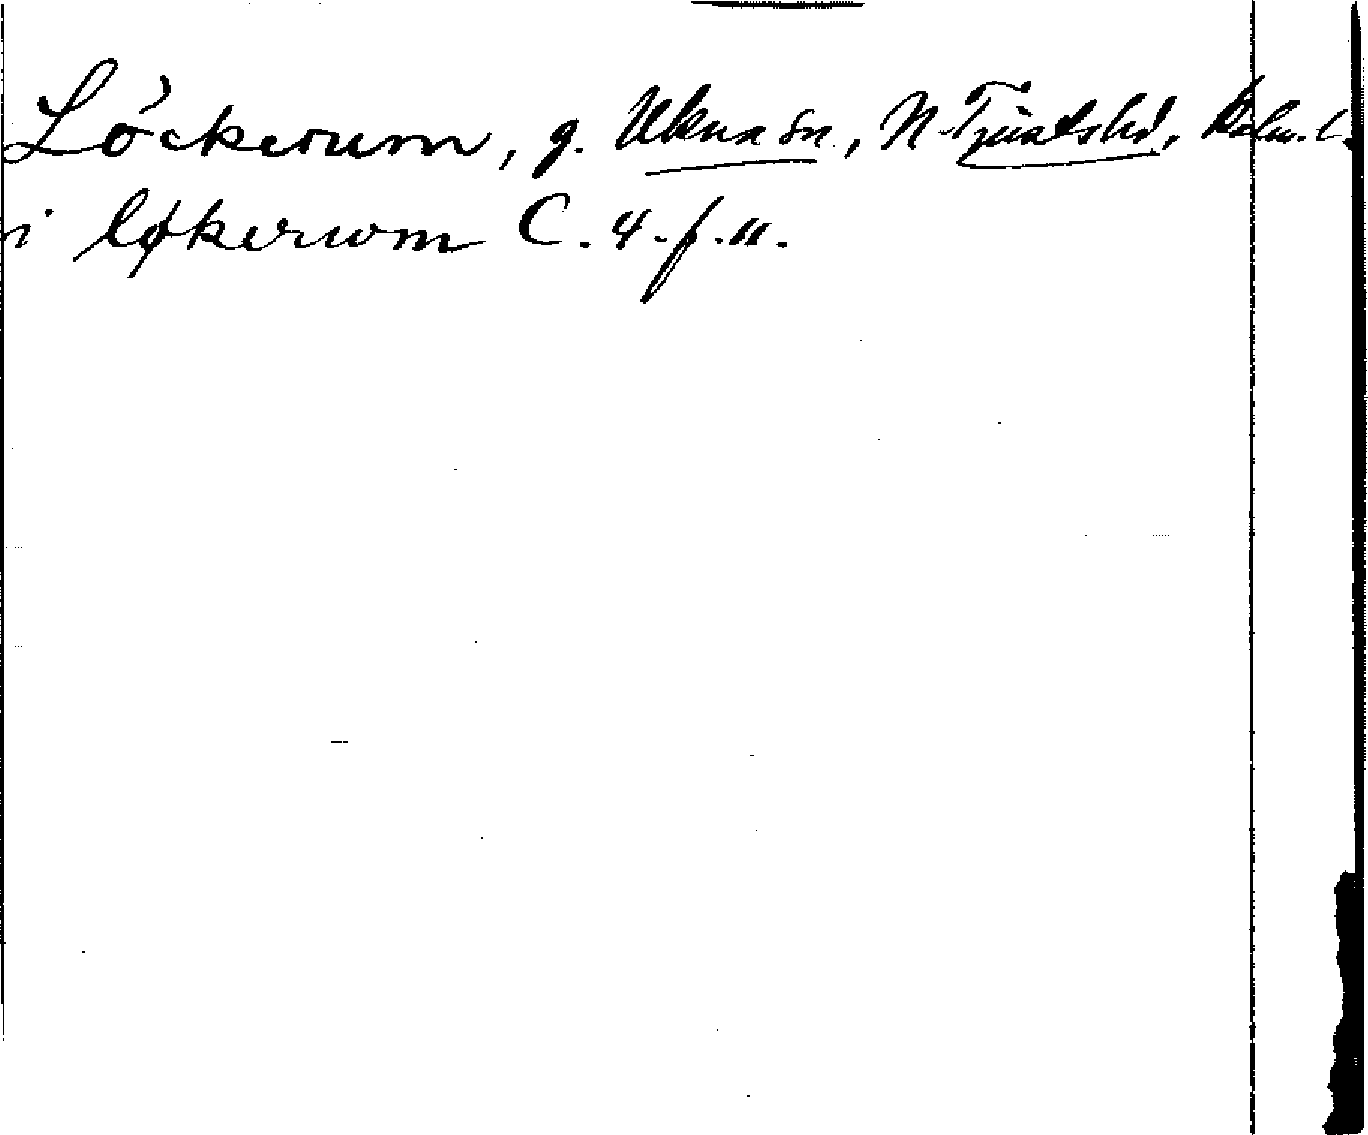 Löckerum, g. Ukna sn., N. Tjusts hd, Kalm. l.
i løkerwm C. 4. f. 11.